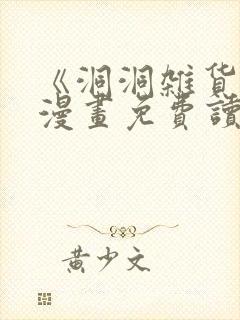 《洞洞雑貨
漫畫免費讀
黃少文